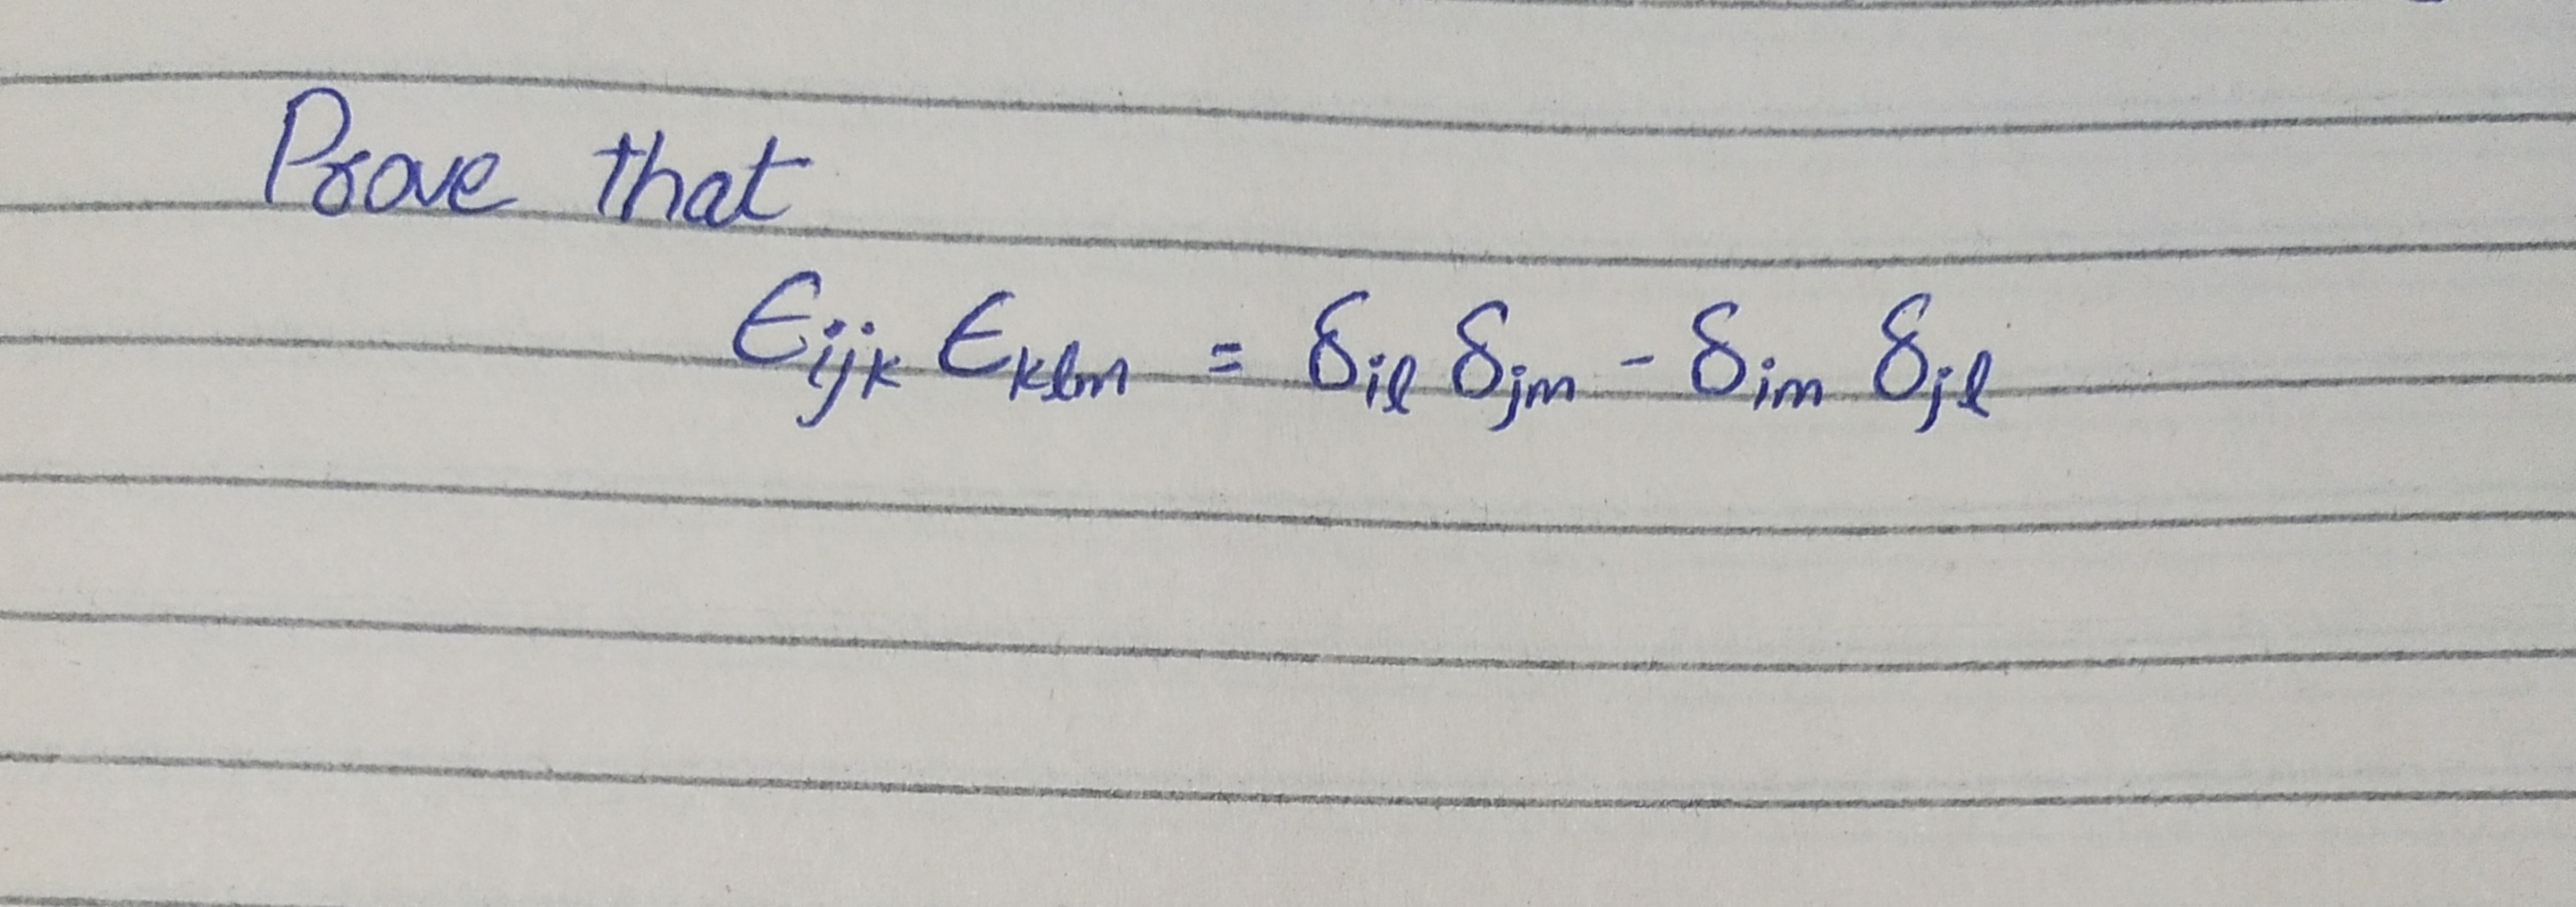 Prove that
ϵijk ϵklm = δil δjm - δim δjl